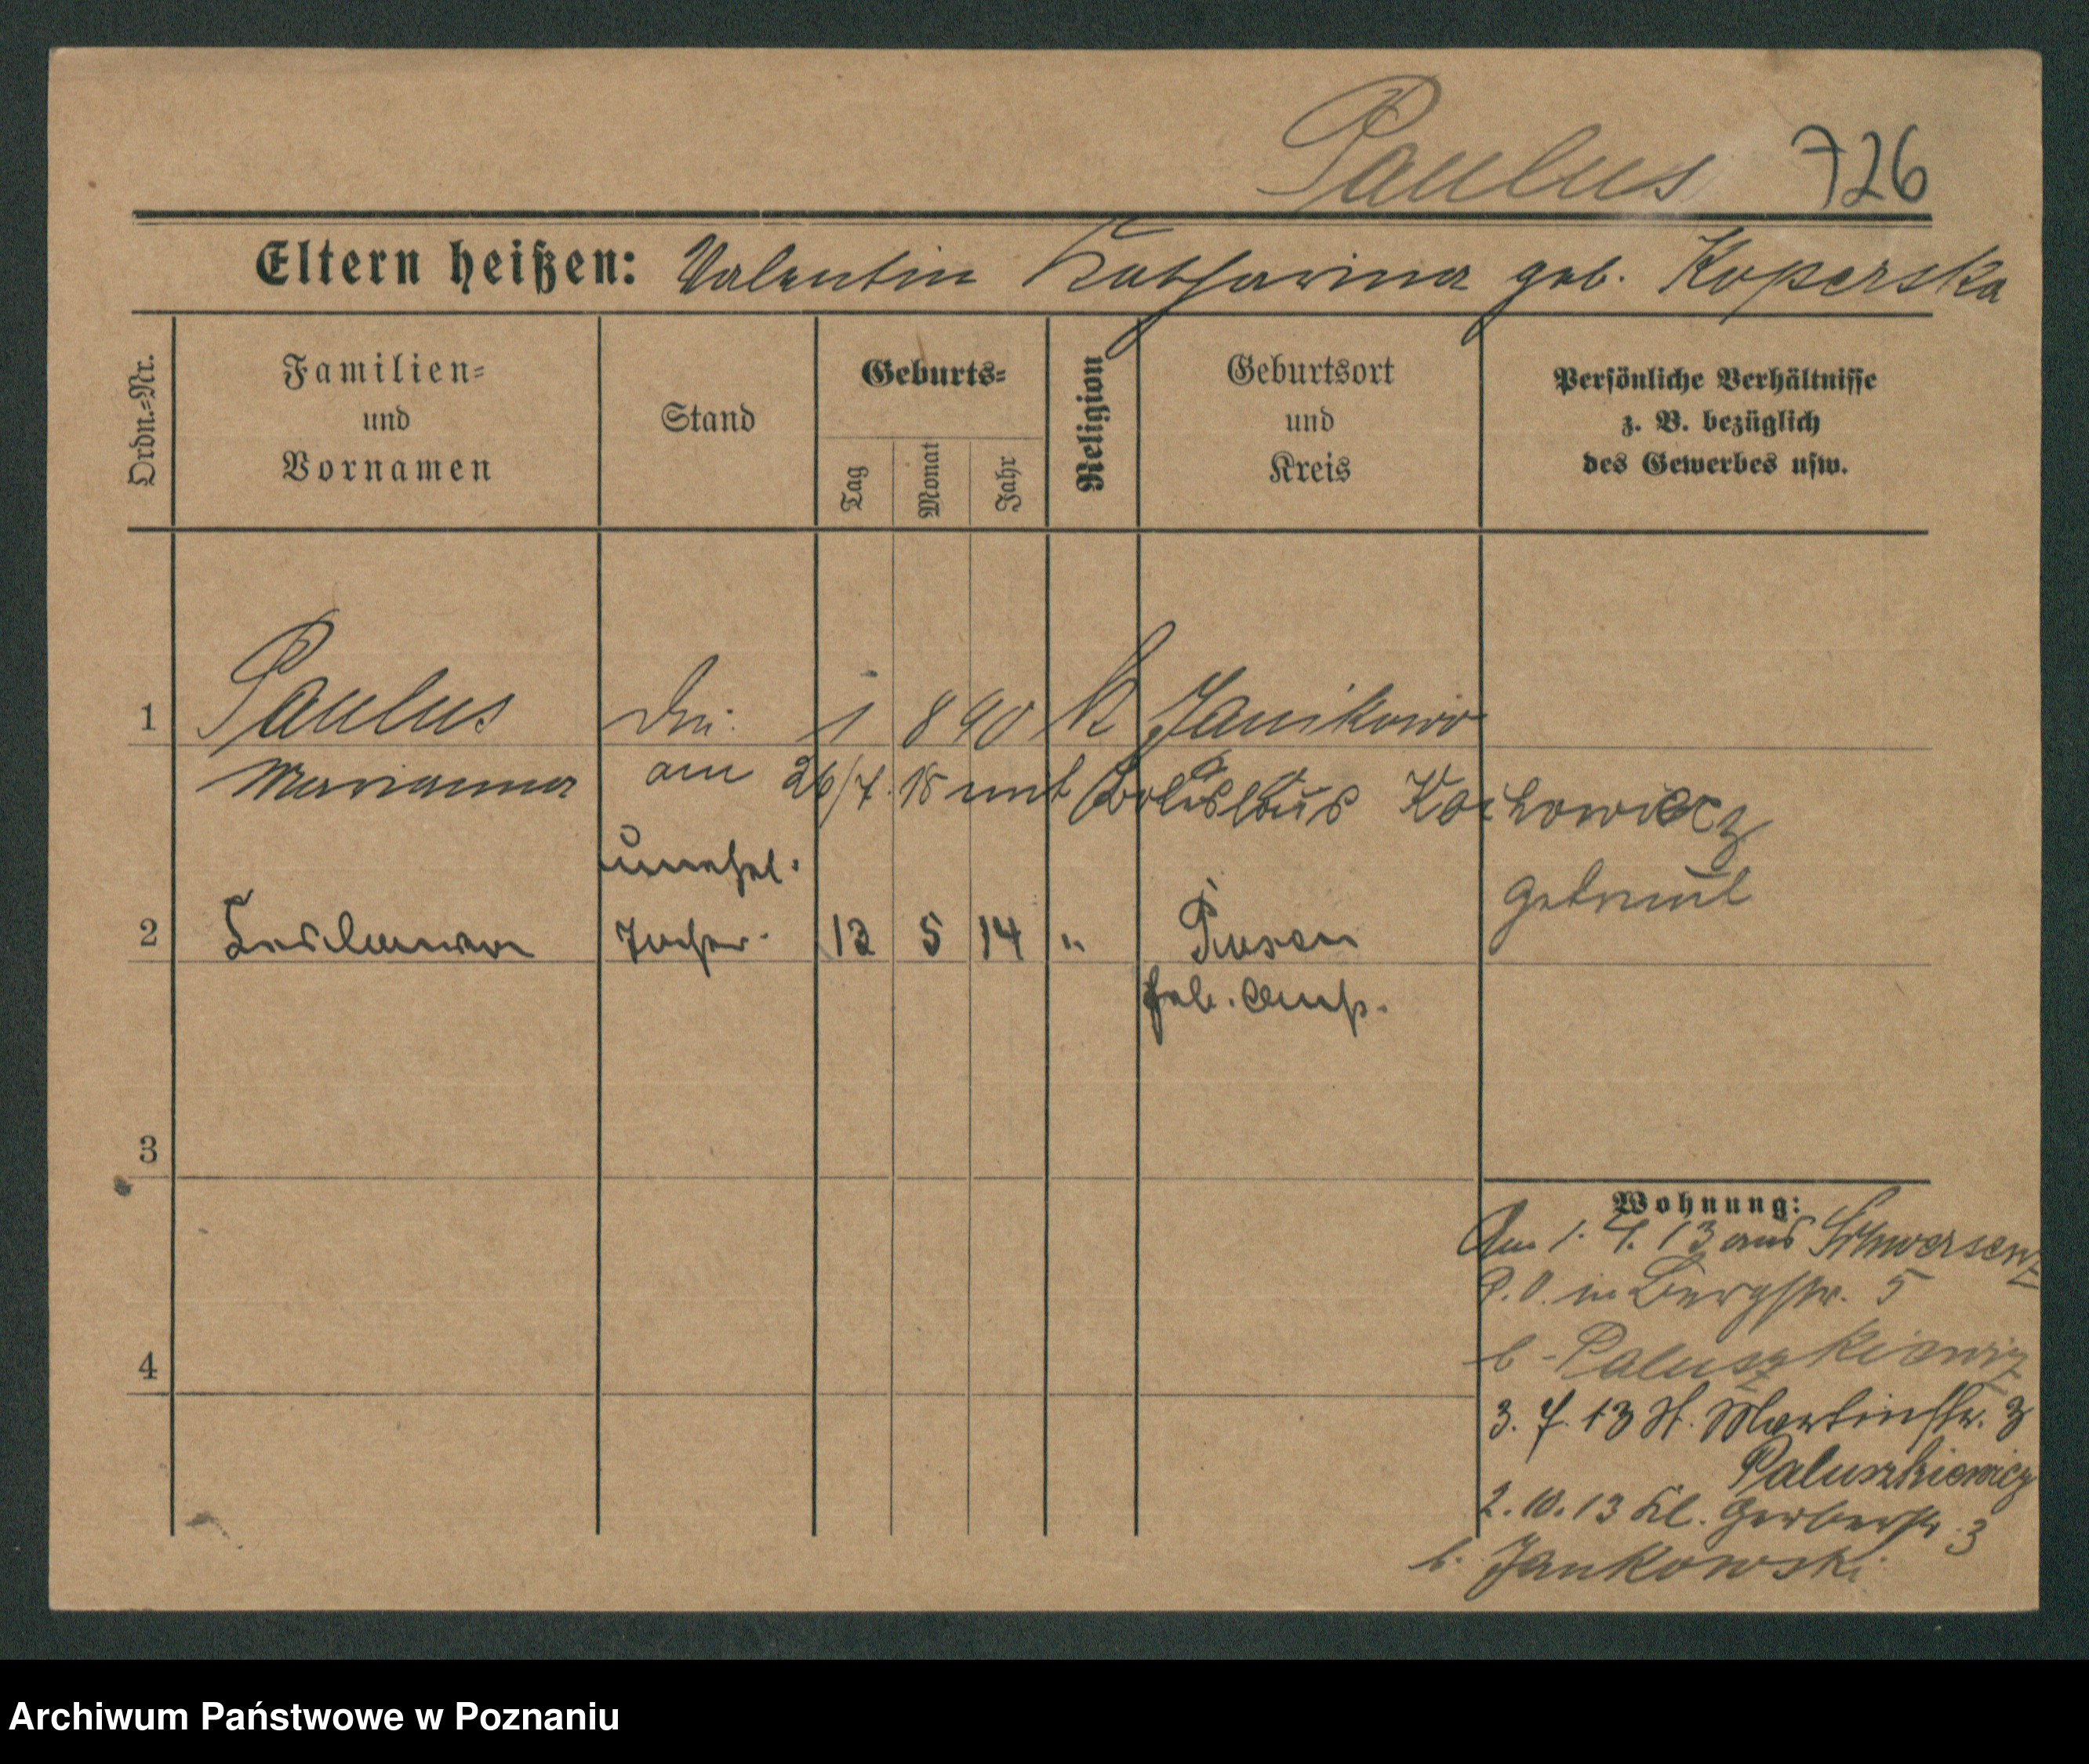 Paulus 726
Eltern heißen: Valentin Katharina geb. Koperska
Ordn.-Nr.
Familien- und Vornamen
Stand
Geburts-
Tag
Monat
Jahr
Religion
Geburtsort und Kreis
Persönliche Verhältnisse z. B. bezüglich des Gewerbes usw.
1 Paulus 1 8 90 K Janikowo
Marianna am 26/7. 18 mit Boleslaus
unehel. getraut
2 Tochter 12 5 14 " Posen
3
4
Wohnung:
Am 1. 4. 13 aus Schwersenz
P. O. in Bergstr. 5
b - Paluszkiewicz
3. 7. 13 St. Martinstr. 3
Paluszkiewicz
2. 10. 13 Kl. Gerberstr. 3
b. Jankowski
Archiwum Państwowe w Poznaniu